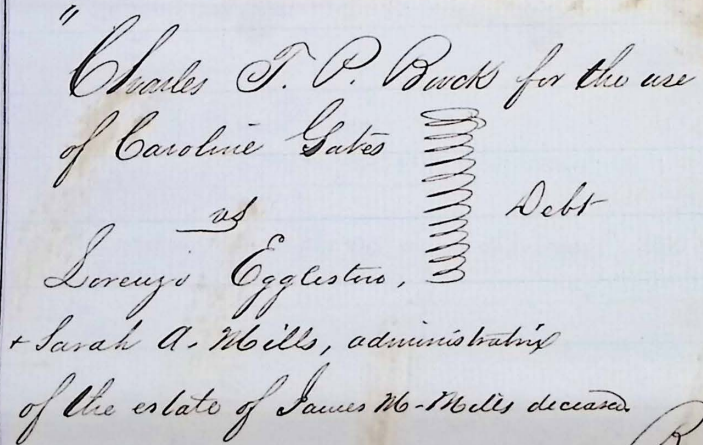 "Charles T. P. Buck for the use
of Caroline Gates
vs Debt
Lorenzo Eggleston,
+ Sarah A. Mills, administratrix
of the estate of James M. Mills deceased